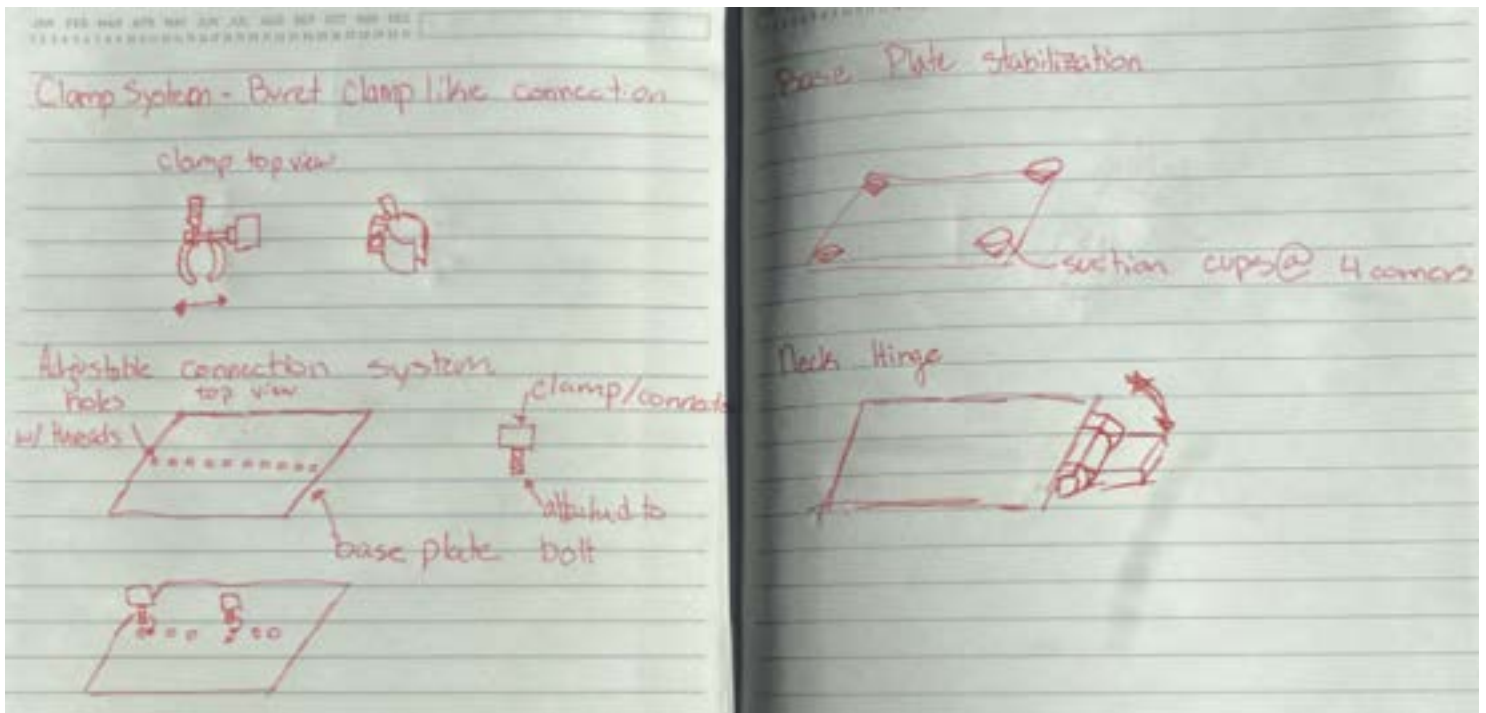 JAN FEB MAR APR MAY JUN JUL AUG SEP OCT NOV DEC
Clamp System - Buret Clamp like connection
clamp top view
Adjustable connection system
top view
holes
w/ threads
clamp/
base plate
attached to
bolt
Base Plate stabilization
suction cups @ 4 corners
Neck Hinge